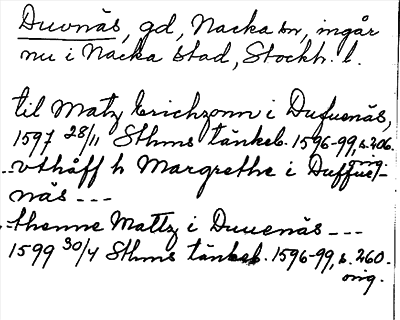 Duvnäs, gd, Nacka sn, ingår
nu i Nacka stad, Stockh. l.
til Matz Erichzonn i Dufuenäs,
1597 28/11 Sthms tänkeb. 1596-99, s. 206.
orig.
-vthåff h Margrethe i Duffue/-
näs ---
-thenne Mattz i Duuenäs ---
1599 30/4 Sthms tänkeb. 1596-99, s. 260.
orig.